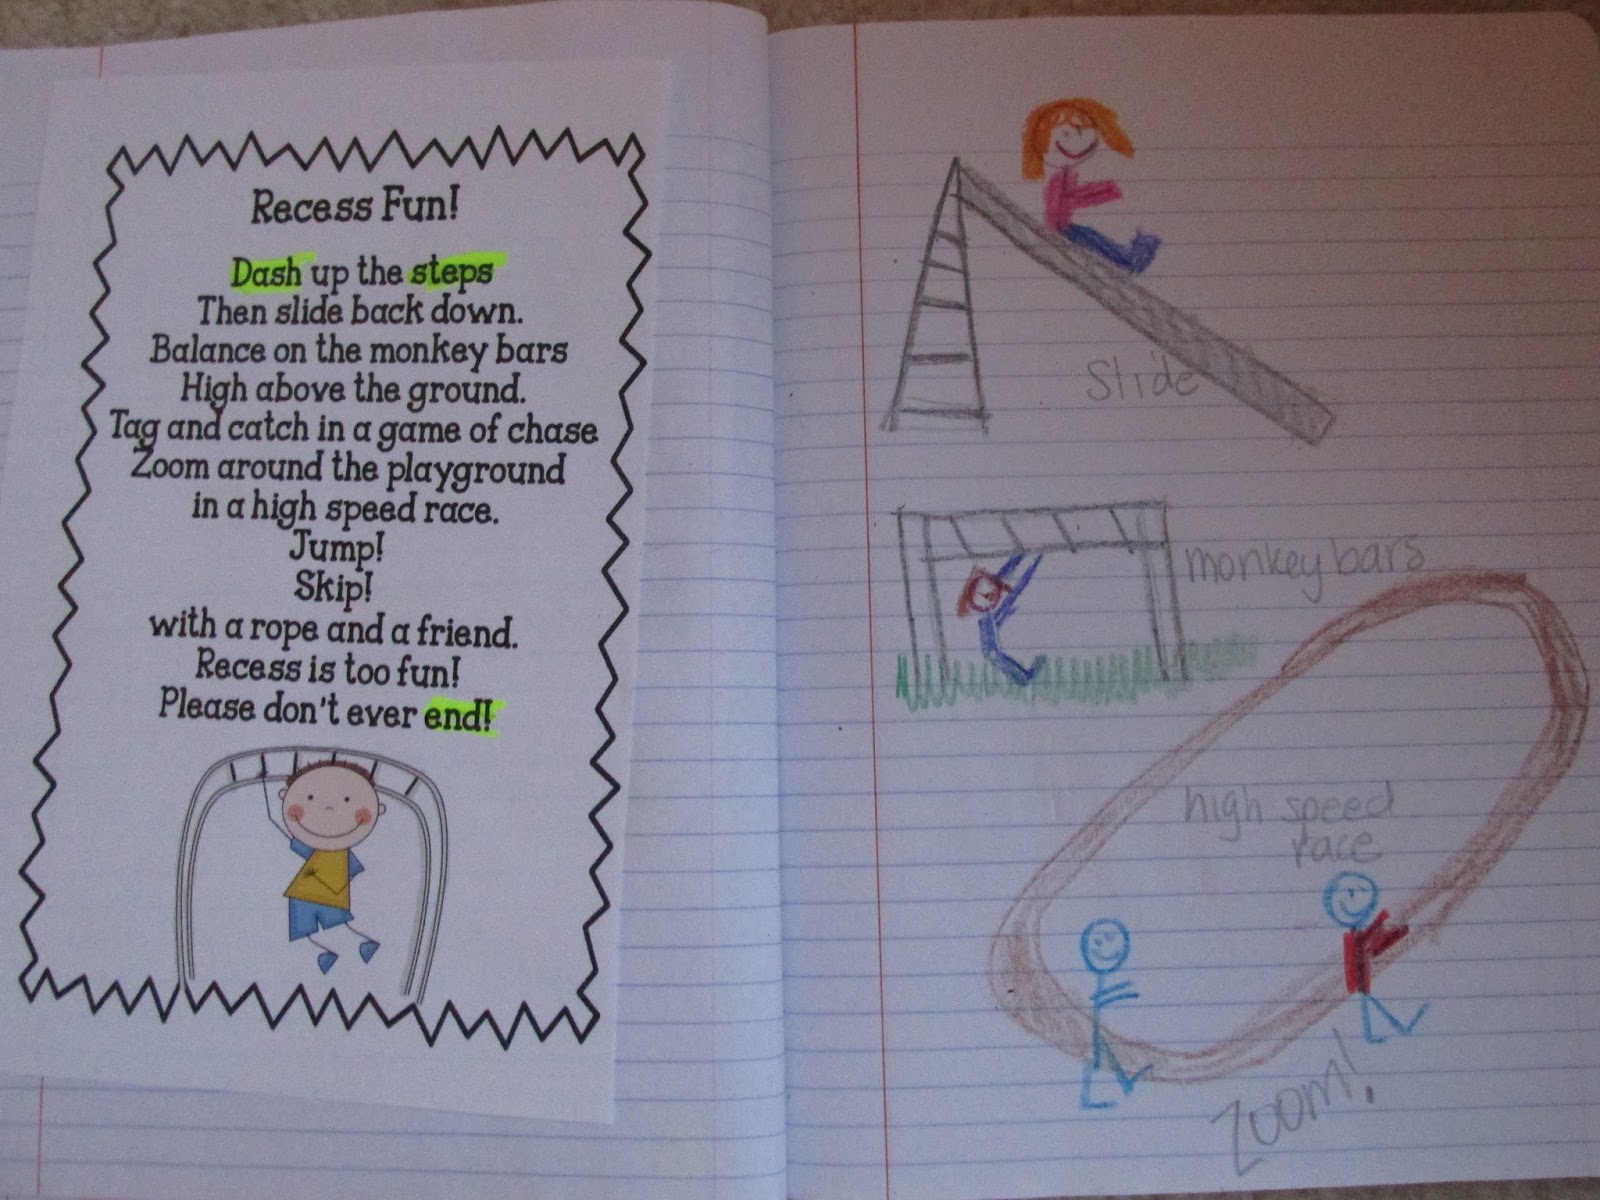 Recess Fun!
Dash up the steps
Then slide back down.
Balance on the monkey bars
High above the ground.
Tag and catch in a game of chase
Zoom around the playground
in a high speed race.
Jump!
Skip!
with a rope and a friend.
Recess is too fun!
Please don't ever end!
Slide
monkey bars
high speed
race
Zoom!